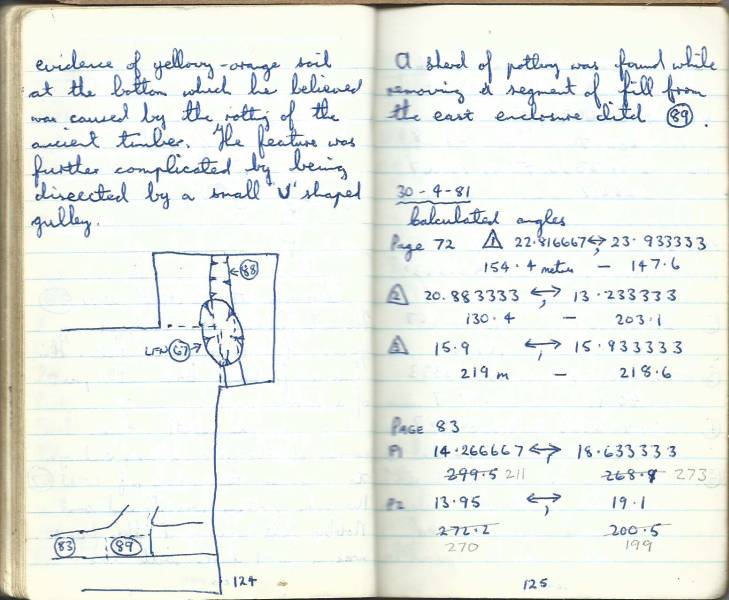 evidence of yellowy-orange soil
at the bottom which he believed
was caused by the rotting of the
ancient timber. The feature was
further complicated by being
disected by a small 'U' shaped
gulley.
88
LFN 67
83
89
124
A sherd of pottery was found while
removing a segment of fill from
the east enclosure ditch 89.
30-4-81
Calculated angles
Page 72 1 22.816667 ↔, 23.933333
154.4 metres - 147.6
2 20.883333 ↔, 13.233333
130.4 - 203.1
3 15.9 ↔, 15.933333
219 m - 218.6
PAGE 83
P1 14.266667 ↔, 18.633333
299.5 211 268.9 273
P2 13.95 ↔, 19.1
272.2 200.5
270 199
125